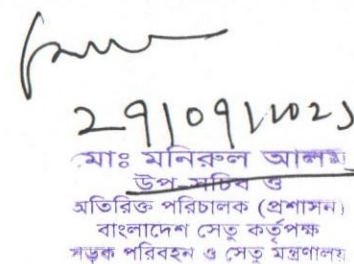 29|09|2021
মোঃ মনিরুল আলম
উপ-সচিব ও
অতিরিক্ত পরিচালক (প্রশাসন)
বাংলাদেশ সেতু কর্তৃপক্ষ
সড়ক পরিবহন ও সেতু মন্ত্রণালয়